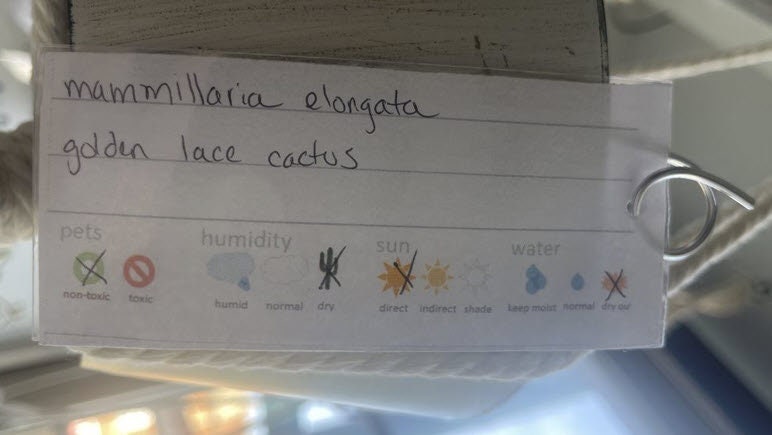 mammillaria elongata
golden lace cactus
pets humidity sun water
non-toxic toxic humid normal dry direct indirect shade keep moist normal dry out